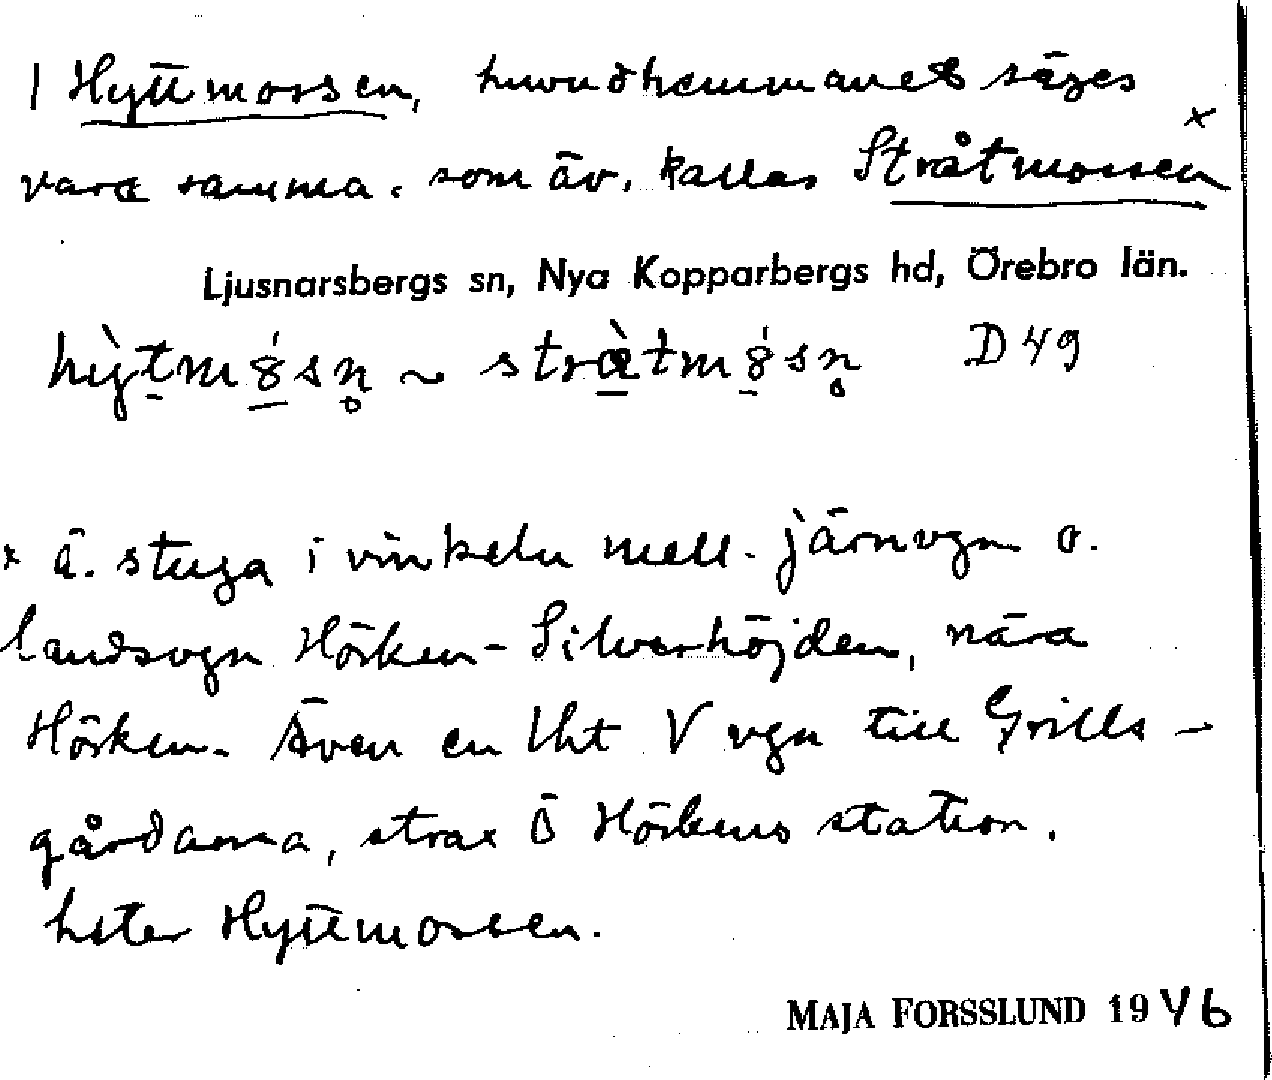 | Hyttmossen, huvudhemmanet säges
vara samma. som äv. kallas Stråtmossen ×
Ljusnarsbergs sn, Nya Kopparbergs hd, Örebro län.
~ D 49
× ä. stuga i vinkeln mell. järnvgn o.
landsvgn Hörken - Silverhöjden, nära
Hörken. Även en lht V vgn till Grills-
gårdarna, strax Ö Hörkens station.
heter Hyttmossen.
MAJA FORSSLUND 1946